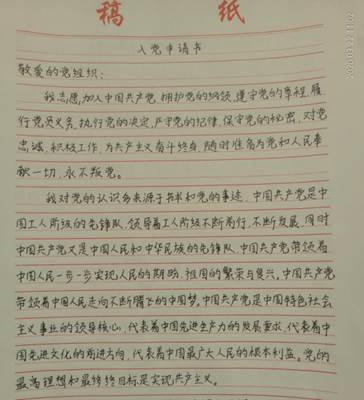 稿 纸
入党申请书
敬爱的党组织：
我志愿加入中国共产党，拥护党的纲领，遵守党的章程，履
行党员义务，执行党的决定，严守党的纪律，保守党的秘密，对党
忠诚，积极工作，为共产主义奋斗终身，随时准备为党和人民奉
献一切，永不叛党。
我对党的认识多来源于书本和党的事迹，中国共产党是中
国工人阶级的先锋队，领导着工人阶级不断前行，不断发展，同时
中国共产党又是中国人民和中华民族的先锋队，中国共产党带领着
中国人民一步一步实现人民的期盼，祖国的繁荣与复兴。中国共产党
带领着中国人民走向不断腾飞的中国梦，中国共产党是中国特色社会
主义事业的领导核心，代表着中国先进生产力的发展要求，代表着中
国先进文化的前进方向，代表着中国最广大人民的根本利益。党的
最高理想和最终终目标是实现共产主义。